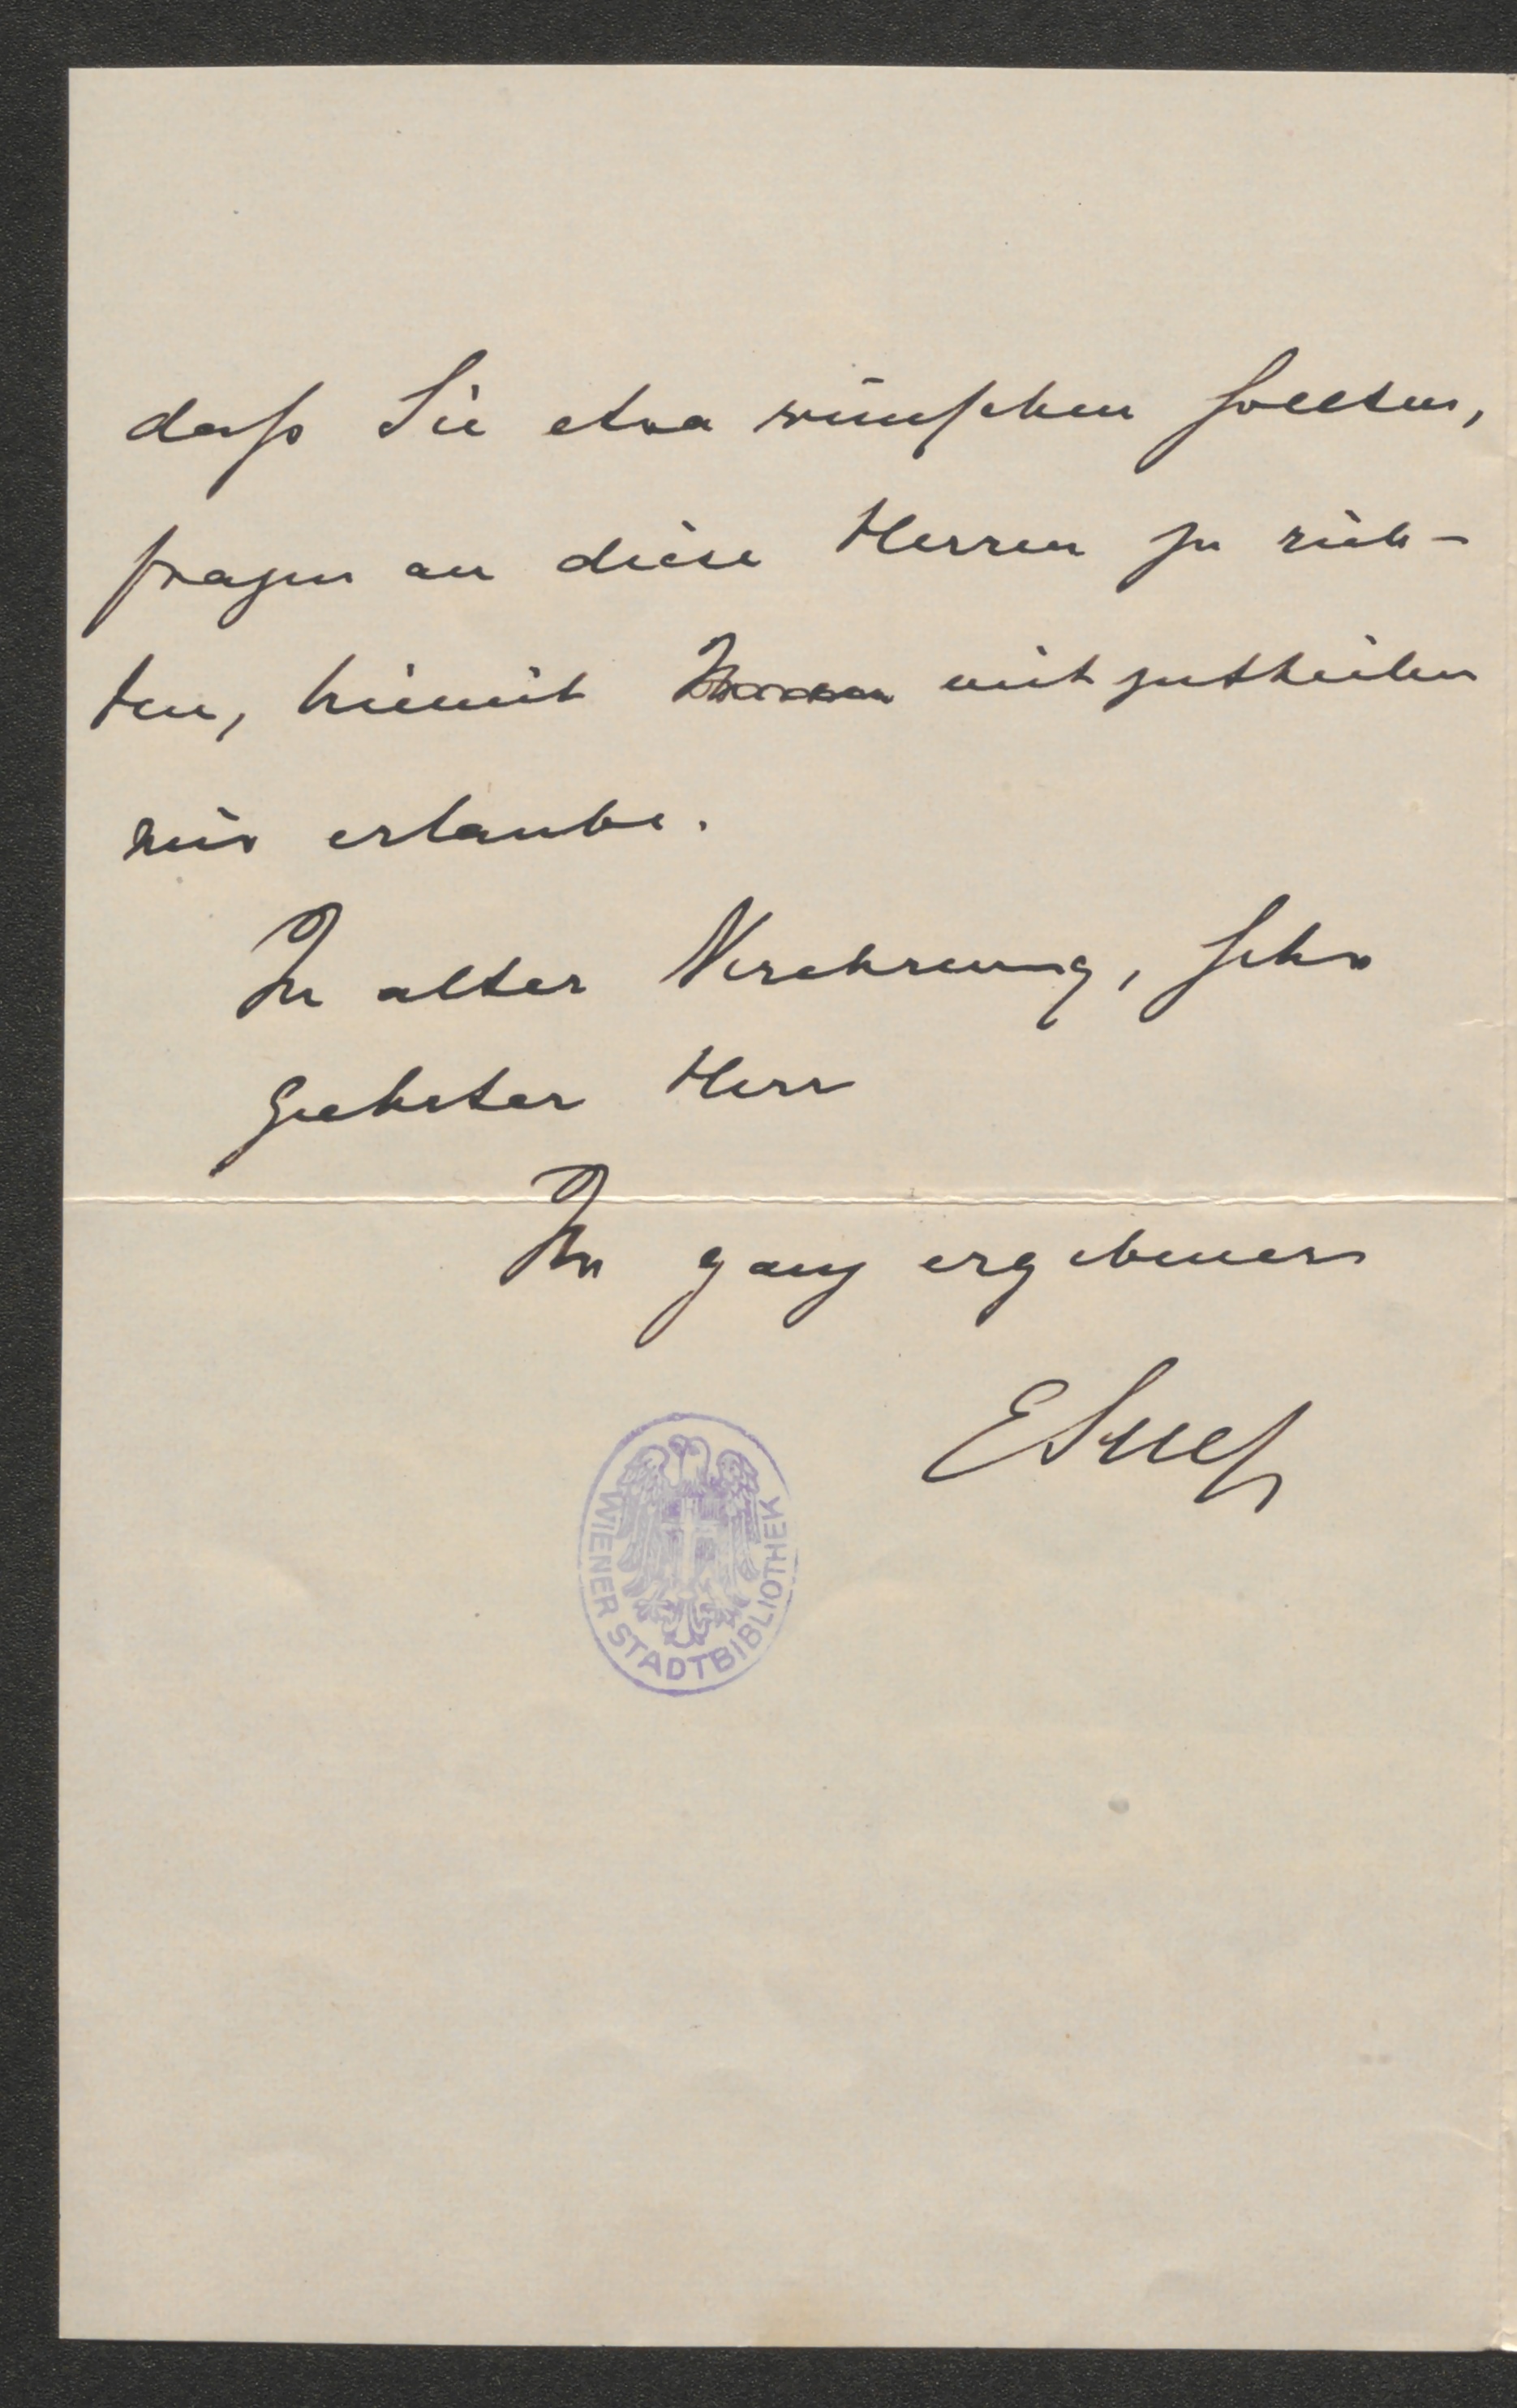 daß Sie etwa wünschen sollten,
fragen an diese Herren zu rich-
ten, hiemit mitzutheilen
mir erlaube.
In alter Verehrung, sehr
geehrter Herr
Ihr ganz ergebener
ESueß
WIENER STADTBIBLIOTHEK